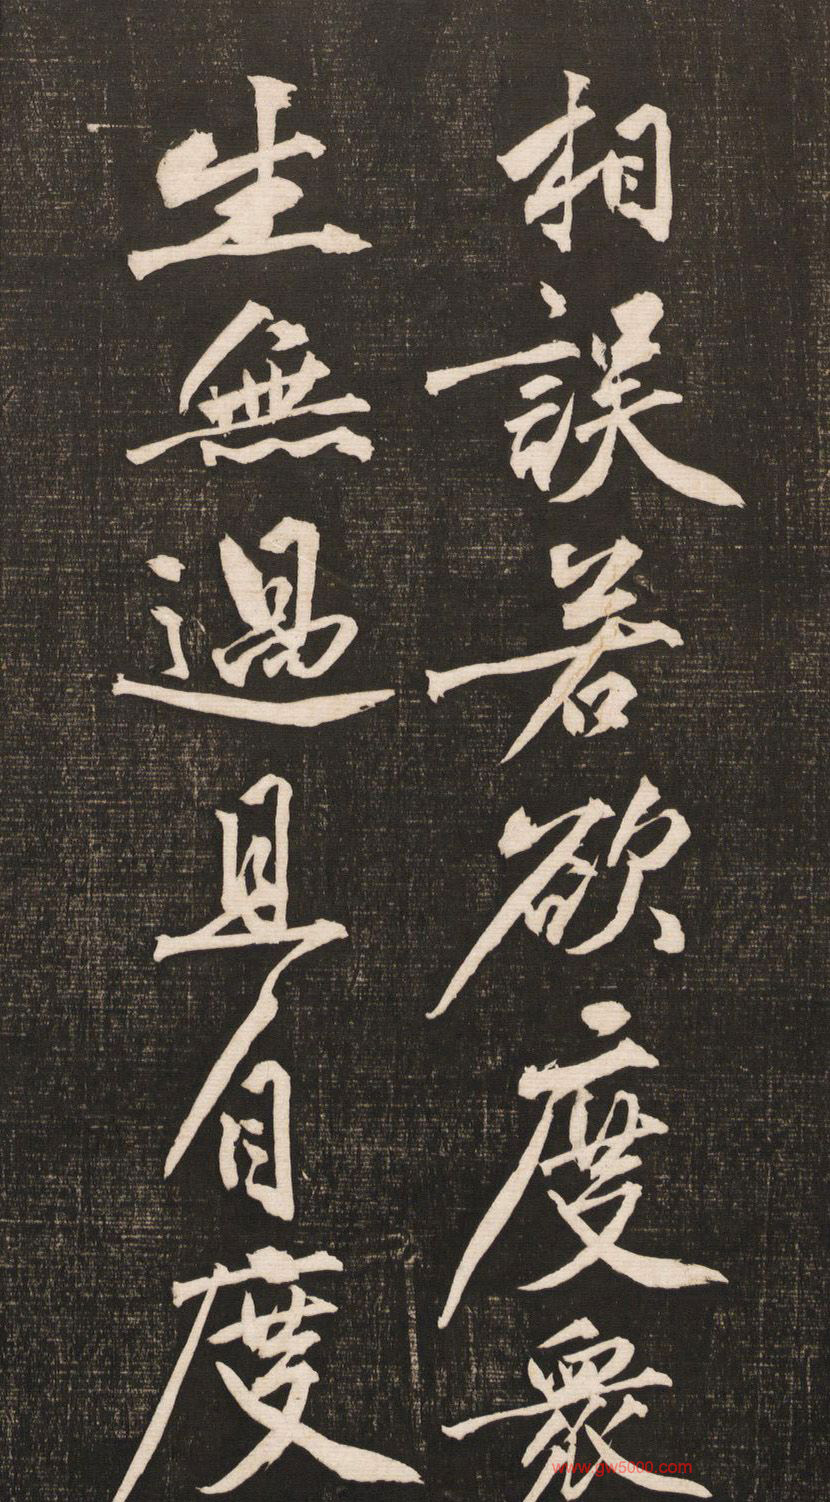 相誤若欲度衆
生無過且自度
www.gw5000.com